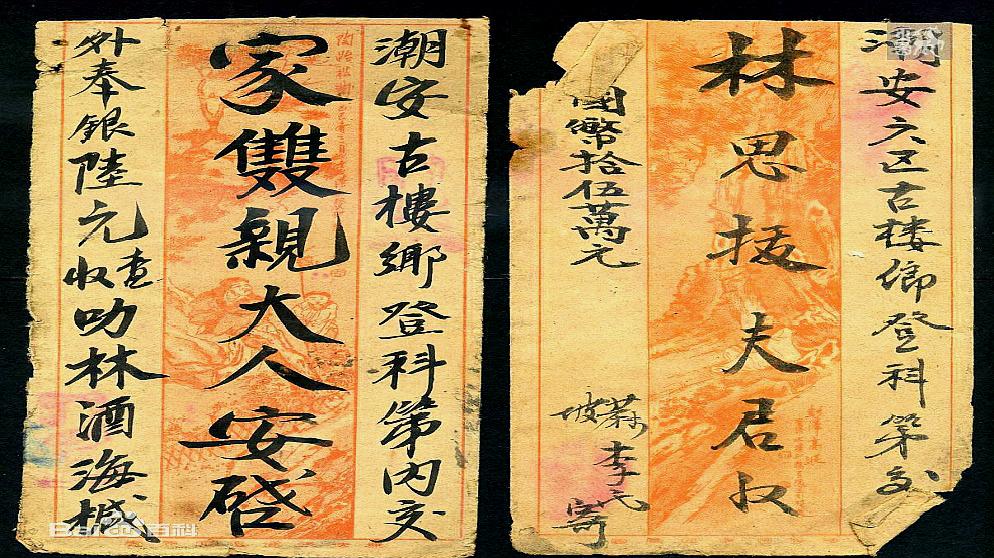 潮安古樓鄉登科第内交
家雙親大人安啓
外奉銀陸元
查收
叻林酒海椷
潮安六区古楼鄉登科第交
林思技夫君收
國幣拾伍萬元
李氏寄
Bai 百科